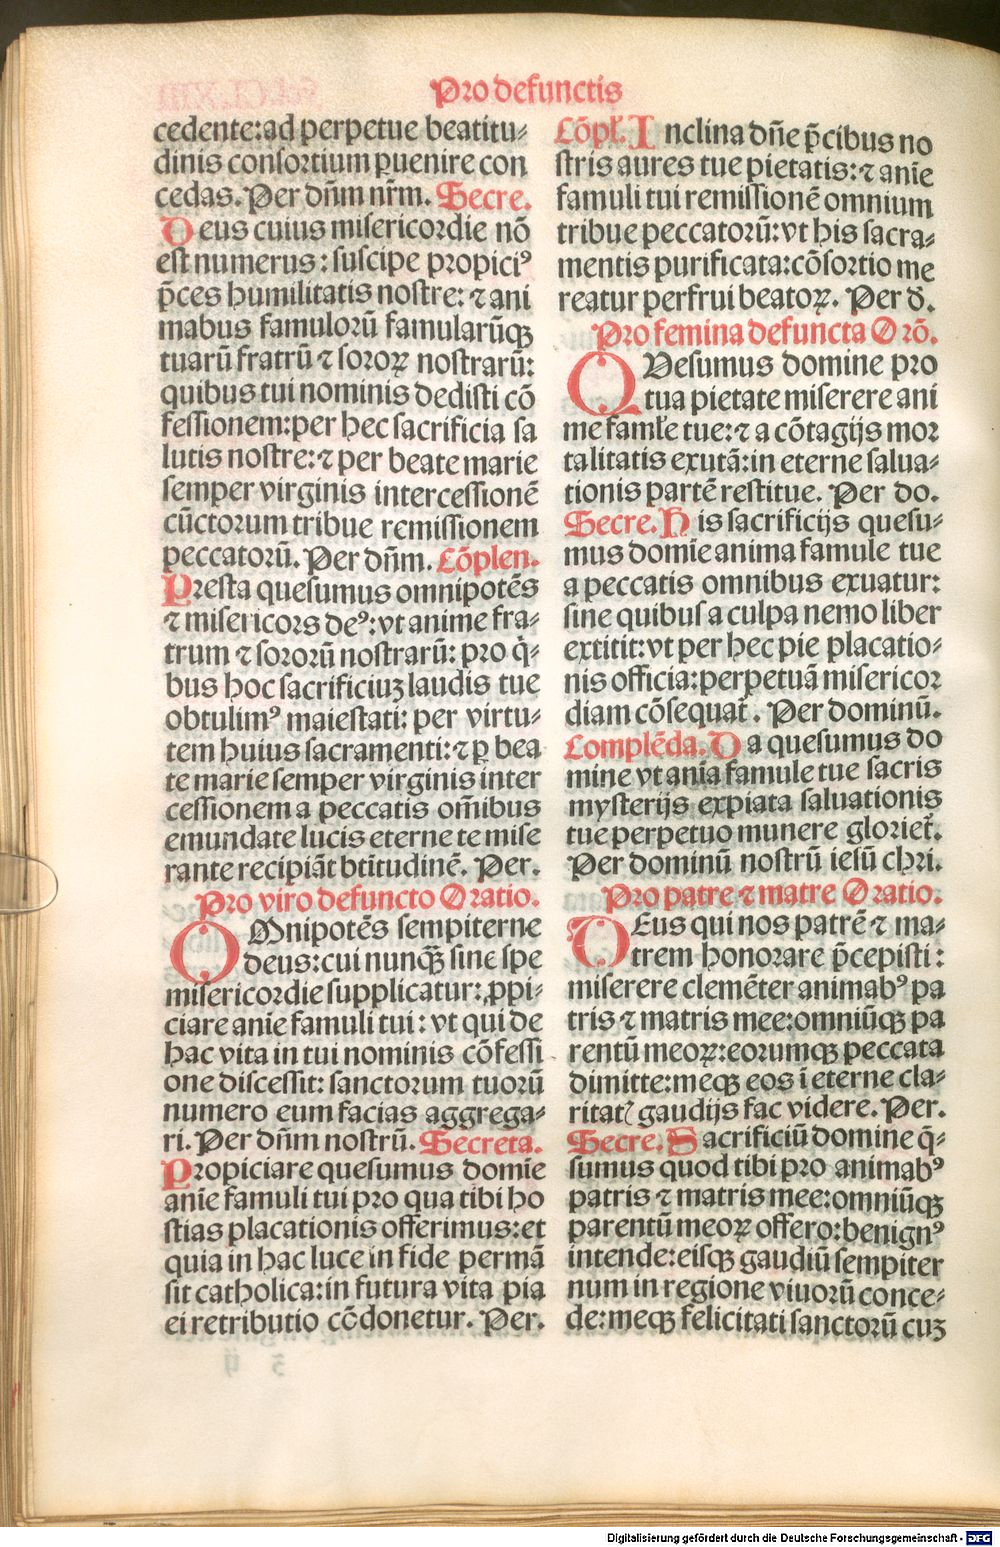 Pro defunctis
cedente:ad perpetue beatitu⸗
dinis consortium ꝑuenire con
cedas. Per dn̄m nr̄m. Secre.
Deus cuius misericordie nō
est numerus: suscipe propiciꝰ
p̄ces humilitatis nostre: ⁊ ani
mabus famulorū famularūqꝫ
tuarū fratrū ⁊ sororꝝ nostrarū:
quibus tui nominis dedisti cō
fessionem:per hec sacrificia sa
lutis nostre:⁊ per beate marie
semper virginis intercessionē
cūctorum tribue remissionem
peccatorū. Per dn̄m. Cōplen.
Presta quesumus omnipotēs
⁊ misericors deꝰ:vt anime fra⸗
trum ⁊ sororū nostrarū: pro q̇⸗
bus hoc sacrificiuꝫ laudis tue
obtulimꝰ maiestati: per virtu⸗
tem huius sacramenti:⁊ ꝑ bea
te marie semper virginis inter
cessionem a peccatis om̄ibus
emundate lucis eterne te mise
rante recipiāt btītudinē. Per.
Pro viro defuncto Oratio.
OMnipotēs sempiterne
deus:cui nunqꝫ̄ sine spe
misericordie supplicatur:ꝓpi⸗
ciare anīe famuli tui: vt qui de
hac vita in tui nominis cōfessi
one discessit: sanctorum tuorū
numero eum facias aggrega⸗
ri. Per dn̄m nostrū. Secreta.
Propiciare quesumus domīe
anīe famuli tui pro qua tibi ho
stias placationis offerimus:et
quia in hac luce in fide permā
sit catholica:in futura vita pia
ei retributio cōdonetur. Per.
Cōpł. Inclina dn̄e p̄cibus no
stris aures tue pietatis:⁊ anīe
famuli tui remissionē omnium
tribue peccatorū:vt his sacra⸗
mentis purificata:cōsortio me
reatur perfrui beatoꝝ. Per d̄.
Pro femina defuncta Orō.
QUesumus domine pro
tua pietate miserere ani
me famłe tue:⁊ a cōtagijs mor
talitatis exutā:in eterne salua⸗
tionis partē restitue. Per do.
Secre. His sacrificijs quesu⸗
mus domīe anima famule tue
a peccatis omnibus exuatur:
sine quibus a culpa nemo liber
extitit:vt per hec pie placatio⸗
nis officia:perpetuā misericor
diam cōsequat̄. Per dominū.
Complēda. Da quesumus do
mine vt anīa famule tue sacris
mysterijs expiata saluationis
tue perpetuo munere gloriet̄.
Per dominū nostrū iesū chri.
Pro patre ⁊ matre Oratio.
DEus qui nos patrē ⁊ ma⸗
trem honorare p̄cepisti:
miserere clemēter animabꝰ pa
tris ⁊ matris mee:omniūqꝫ pa
rentū meoꝝ:eorumqꝫ peccata
dimitte:meqꝫ eos ī eterne cla⸗
ritatꝭ gaudijs fac videre. Per.
Secre. Sacrificiū domine q̄⸗
sumus quod tibi pro animabꝰ
patris ⁊ matris mee:omniūqꝫ
parentū meoꝝ offero:benignꝰ
intende:eisqꝫ gaudiū sempiter
num in regione viuorū conce⸗
de:meqꝫ felicitati sanctorū cuꝫ
Digitalisierung gefördert durch die Deutsche Forschungsgemeinschaft - DFG